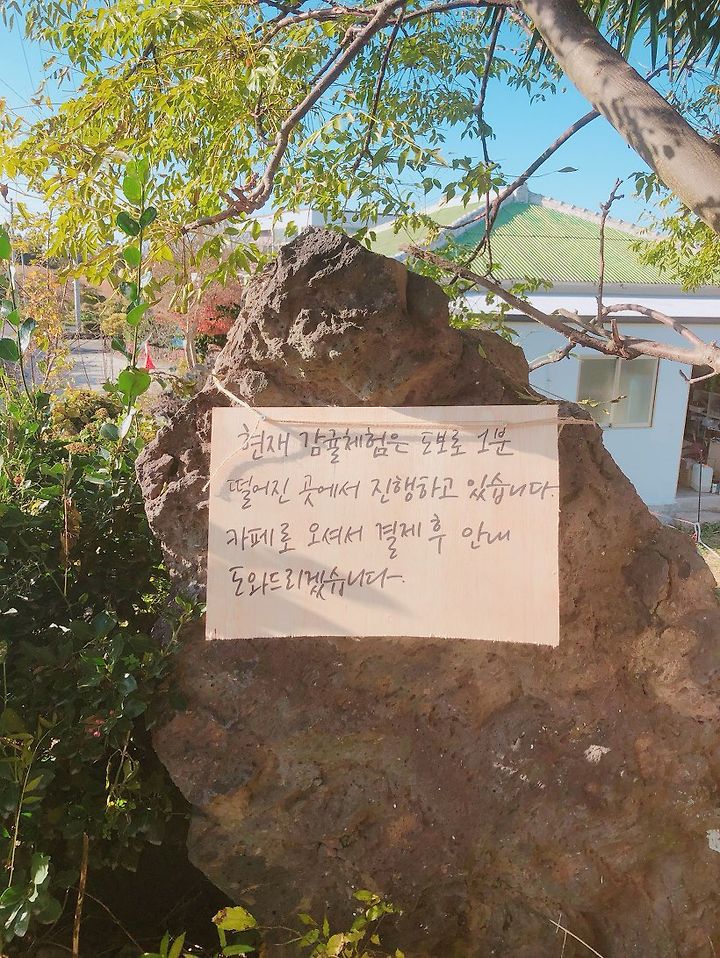 현재 감귤체험은 도보로 1분
떨어진 곳에서 진행하고 있습니다.
카페로 오셔서 결제 후 안내
도와드리겠습니다.